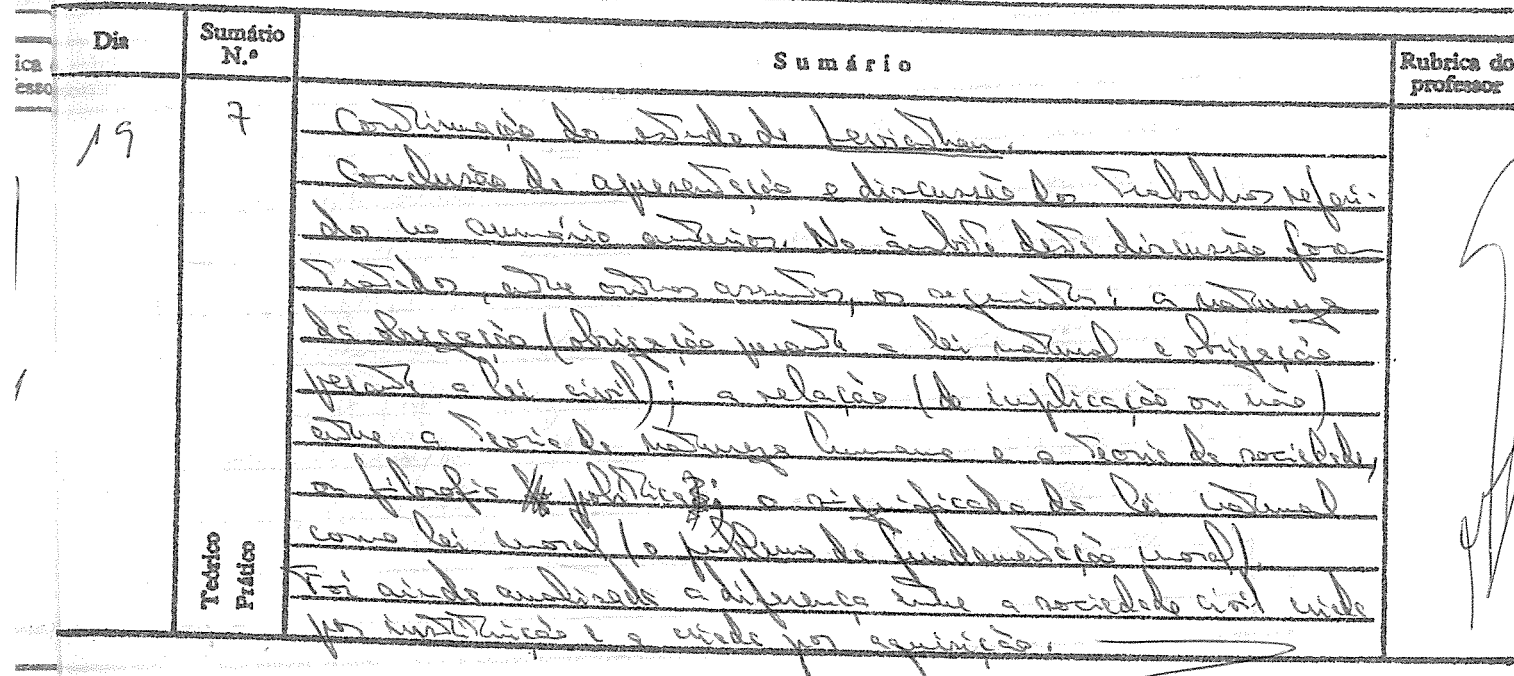 Dia
Sumário
N.º
Sumário
Rubrica do
professor
ica
esso
19
7
Continuação do estudo de Leviathan.
Conclusão da apresentação e discussão dos trabalhos referi-
dos no sumário anterior. No âmbito desta discussão foram
tratados, entre outros assuntos, os seguintes: a natureza
da obrigação (obrigação perante a lei natural e obrigação
perante a lei civil); a relação (de implicação ou não)
entre a teoria da natureza humana e a teoria da sociedade,
ou filosofia política; o significado da lei natural
como lei moral (o problema da fundamentação moral).
Foi ainda analisada a diferença entre a sociedade civil criada
por instituição e a criada por aquisição.
Teórico
Prático